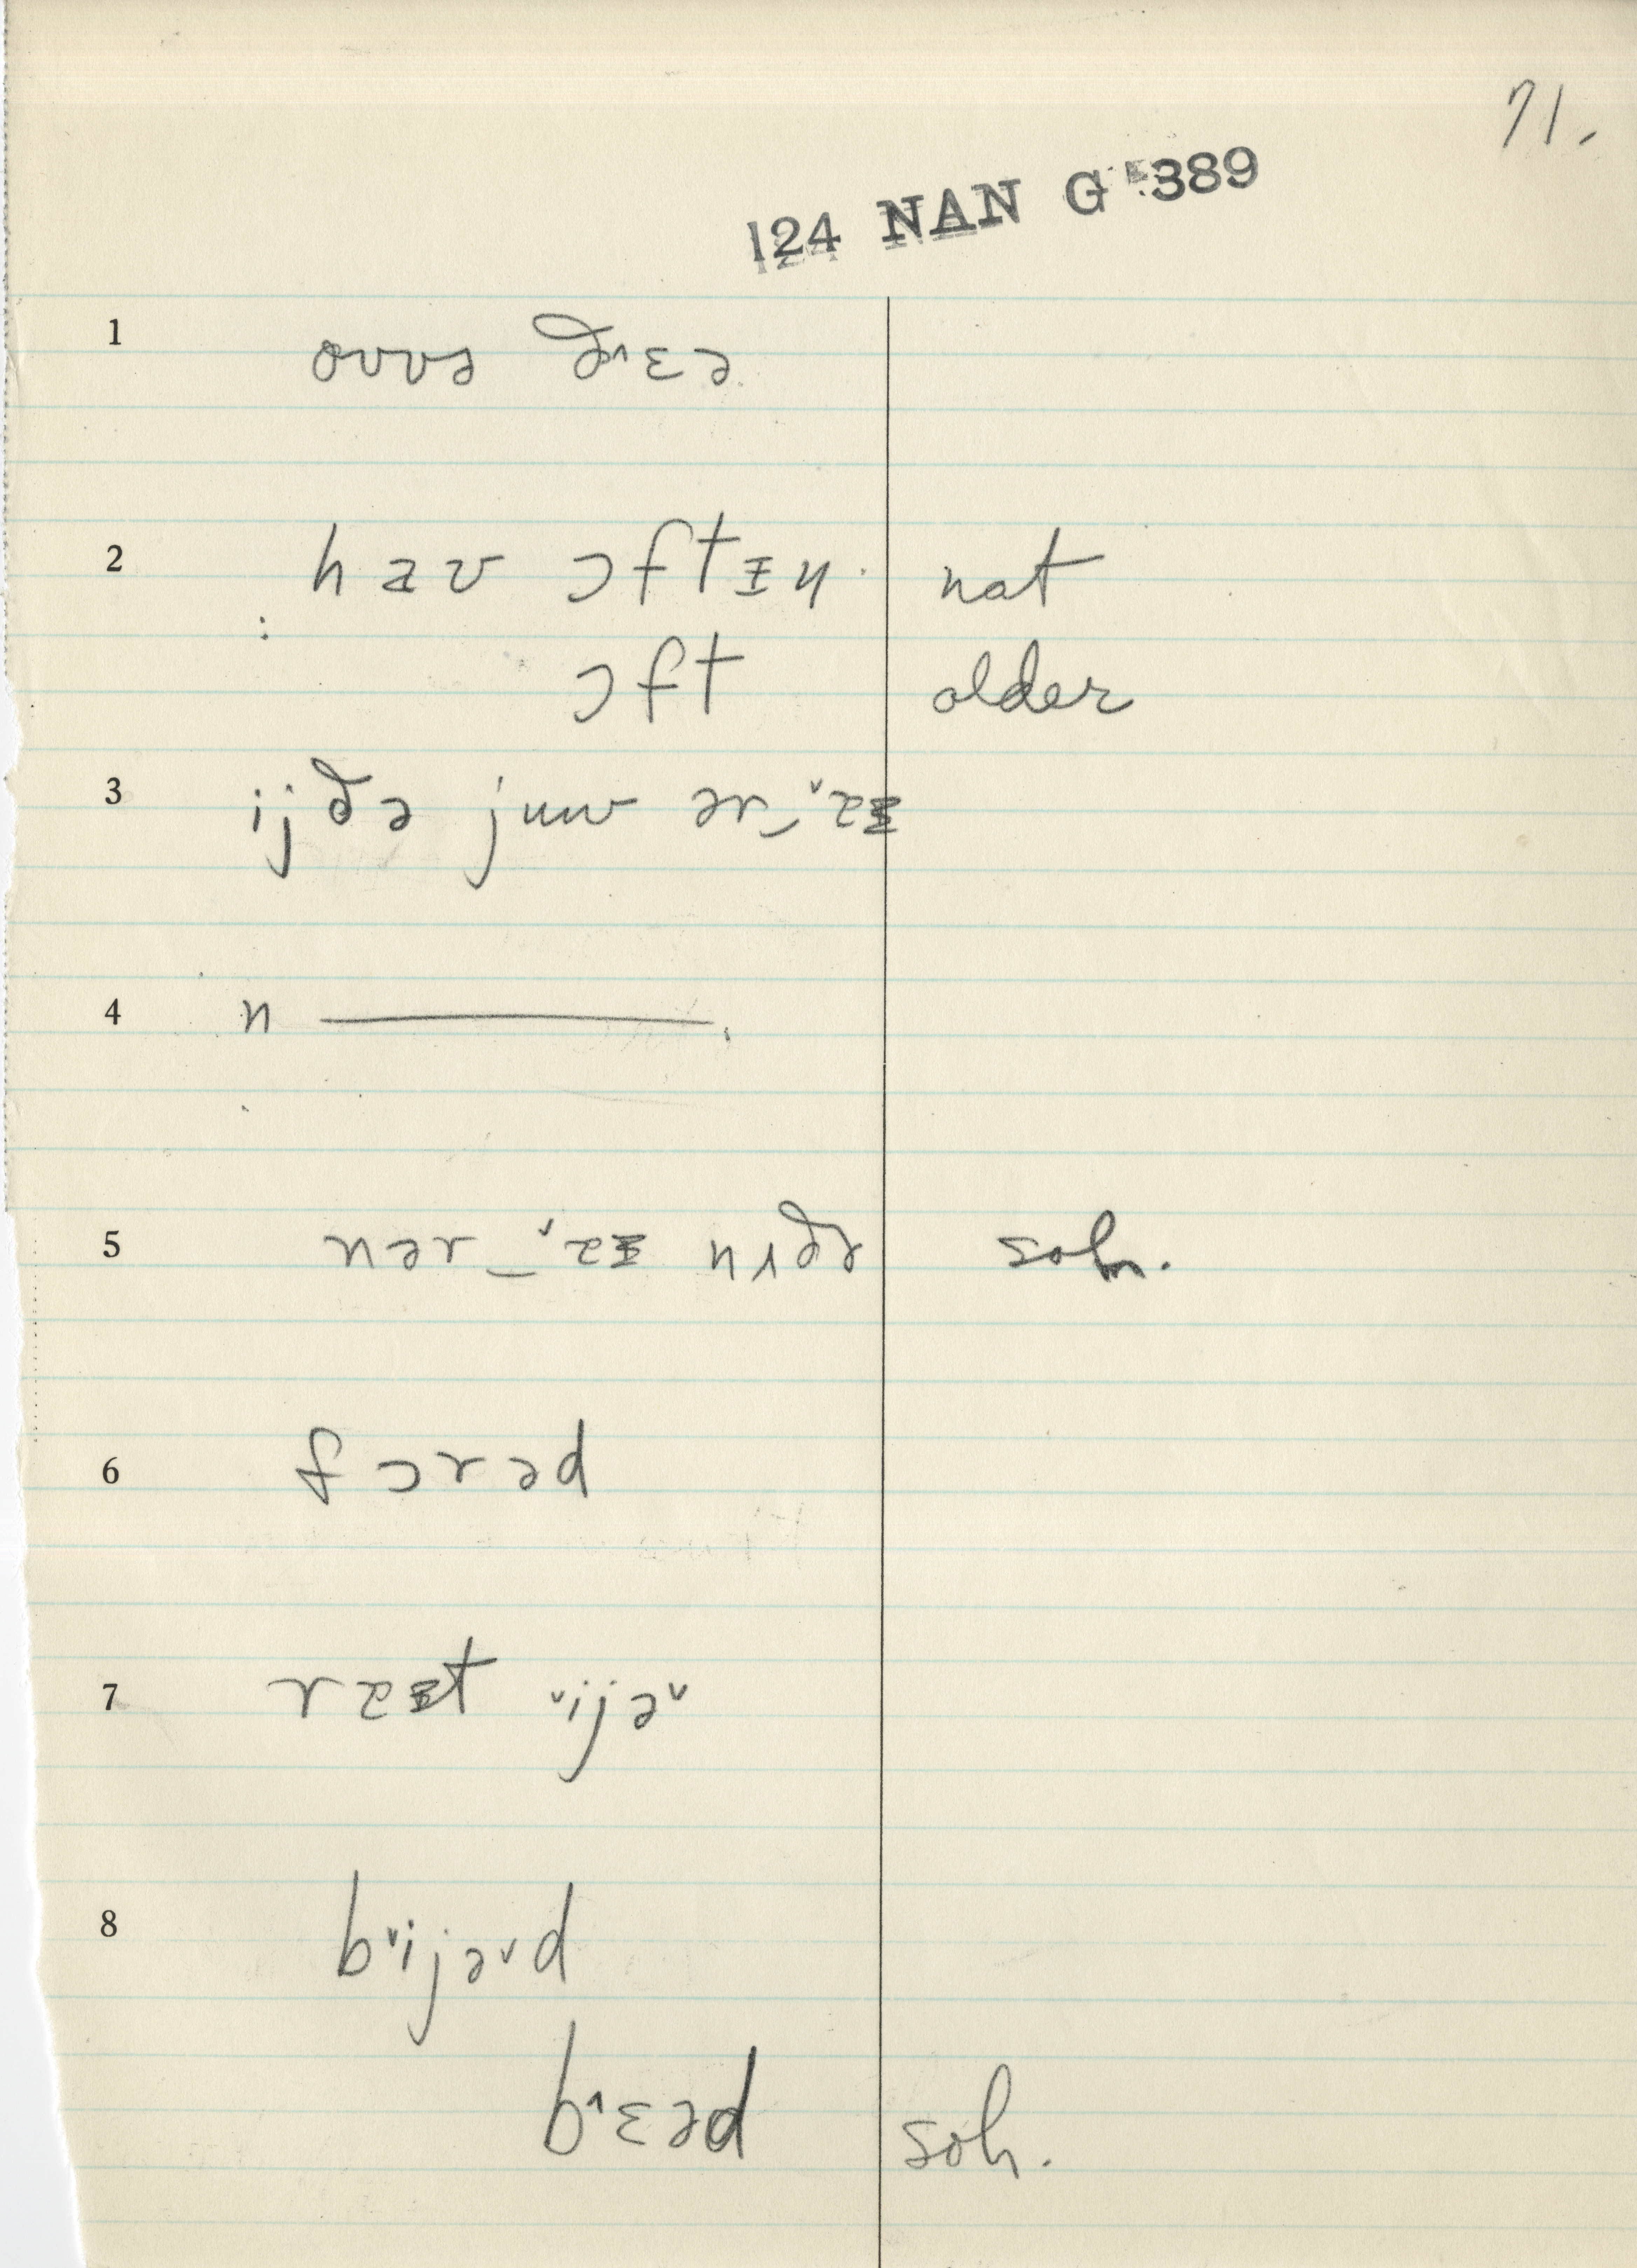 71.
124 NAN G 389
1 ovvə ð˄ɛə
2 hæv ɔftɪn. nat
: ɔft older
3 ijðə juw ər_˅æᵻ
4 n ———.
5 nər _˅æᵻ nɪðr soh.
6 fɔrəd
7 ræᵻt ˅ijə˅
8 b˅ijə˅d
b˄ɛəd soh.